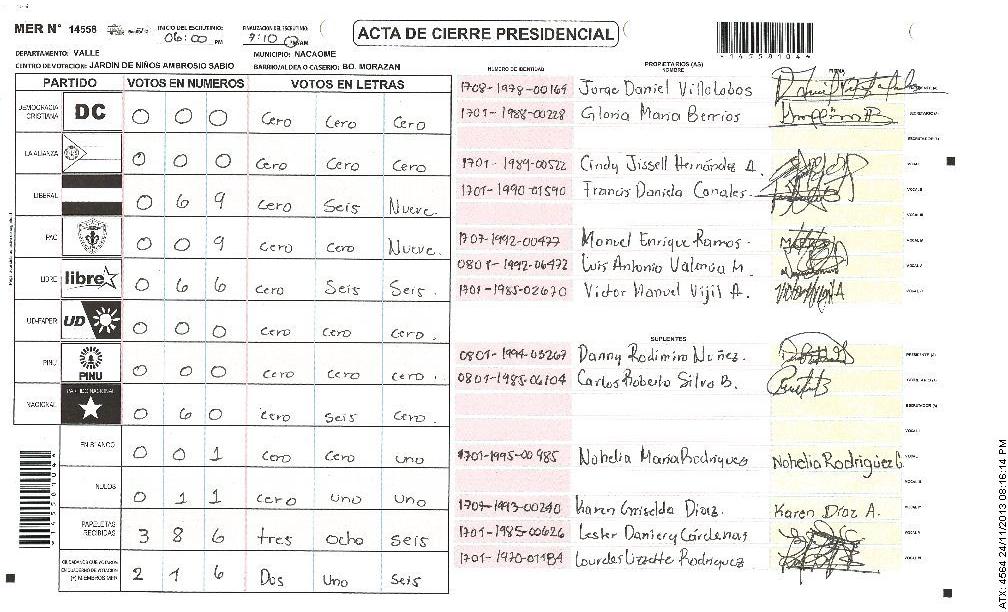 MER N° 14558
INICIO DEL ESCRUTINIO: 06:00 PM
FINALIZACION DEL ESCRUTINIO:
ACTA DE CIERRE PRESIDENCIAL
DEPARTAMENTO: VALLE
MUNICIPIO: NACAOME
CENTRO DE VOTACION: JARDIN DE NIÑOS AMBROSIO SABIO
BARRIO/ALDEA O CASERIO: BO. MORAZAN
PARTIDO VOTOS EN NUMEROS VOTOS EN LETRAS
DEMOCRACIA CRISTIANA DC 0 0 0 Cero Cero Cero
LA ALIANZA 0 0 0 Cero Cero Cero
LIBERAL 0 6 9 Cero Seis Nueve.
PAC 0 0 9 Cero Cero Nueve.
LIBRE libre 0 6 6 Cero Seis Seis.
UD-FAPER UD 0 0 0 Cero Cero Cero.
PINU PINU 0 0 0 Cero Cero Cero.
NACIONAL PARTIDO NACIONAL 0 6 0 Cero Seis Cero.
EN BLANCO 0 0 1 Cero Cero uno
NULOS 0 1 1 Cero uno uno
PAPELETAS RECIBIDAS 3 8 6 tres ocho seis
CIUDADANOS QUE VOTARON EN CUADERNO DE VOTACION (+) MIEMBROS MER 2 1 6 Dos Uno Seis
NUMERO DE IDENTIDAD
PROPIETARIOS (AS)
NOMBRE
FIRMA
1708-1978-00164 Jorge Daniel Villalobos
1701-1988-00228 Gloria Maria Berrios
1701-1989-00522 Cindy Jissell Hernández A.
1701-1990-01590 Francis Daniela Canales.
1707-1992-00477 Manuel Enrique Ramos.
0801-1992-06472 Luis Antonio Valencia M.
1701-1985-02670 Victor Manuel Vijil A.
SUPLENTES
0801-1994-03267 Danny Rodimiro Nuñez.
0801-1985-06104 Carlos Roberto Silva B.
1701-1995-00985 Nohelia Maria Rodriguez Nohelia Rodriguez
1701-1993-00240 Karen Griselda Diaz. Karen Díaz A.
1701-1985-00626 Lesker Daniery Cárdenas
1701-1970-01184 Lourdes Lizette Rodriguez
145581044
145581044
ATX: 4564 24/11/2013 08:16:14 PM